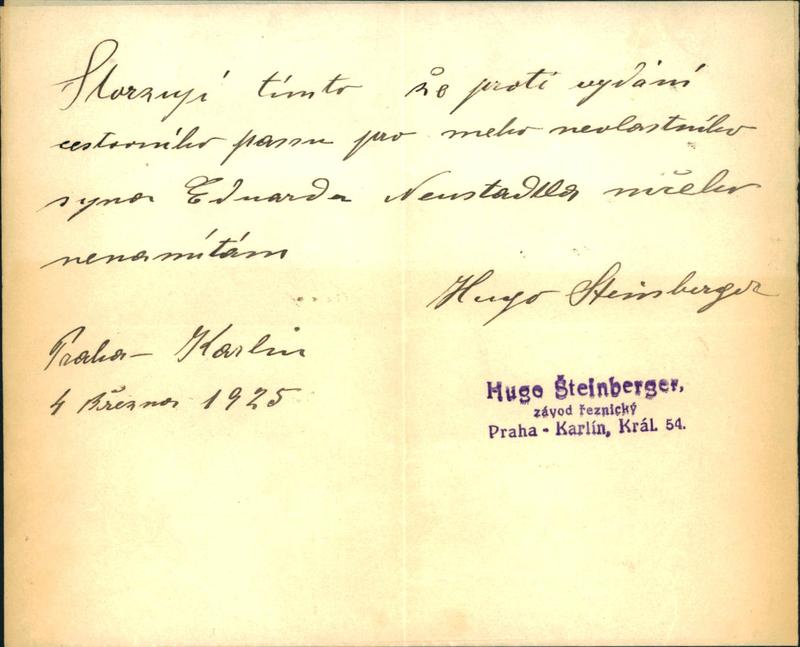 Stvrzuji tímto že proti vydání
cestovního passu pro meho nevlastního
syna Eduarda Neustadtla ničeho
nenamítám
Hugo Steinberger
Praha - Karlin
4 Března 1925
Hugo Šteinberger,
závod řeznický
Praha - Karlín, Král. 54.